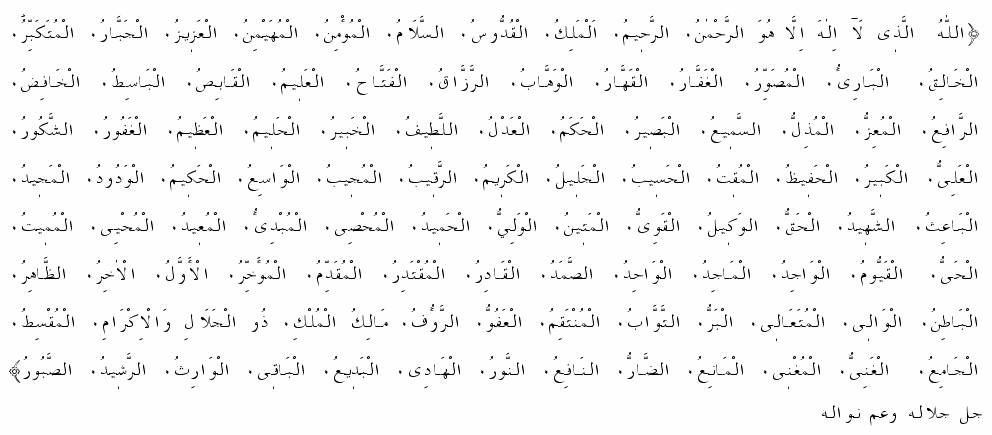 ﴿اللّٰهُ الَّذِى لَآ اِلٰهَ اِلَّا هُوَ الرَّحْمٰنُ. الرَّحِيمُ. اَلْمَلِكُ. الْقُدُّوسُ. السَّلَامُ. الْمُؤْمِنُ. الْمُهَيْمِنُ. الْعَزِيزُ. الْجَبَّارُ. الْمُتَكَبِّرُ.
الْخَالِقُ. الْبَارِىُٔ. الْمُصَوِّرُ. الْغَفَّارُ. الْقَهَّارُ. الْوَهَّابُ. الرَّزَّاقُ. الْفَتَّاحُ. الْعَلِيمُ. الْقَابِضُ. الْبَاسِطُ. الْخَافِضُ.
الرَّافِعُ. الْمُعِزُّ. الْمُذِلُّ. السَّمِيعُ. الْبَصِيرُ. الْحَكَمُ. الْعَدْلُ. اللَّطِيفُ. الْخَبِيرُ. الْحَلِيمُ. الْعَظِيمُ. الْغَفُورُ. الشَّكُورُ.
الْعَلِىُّ. الْكَبِيرُ. الْحَفِيظُ. الْمُقِتُ. الْحَسِيبُ. الْجَلِيلُ. الْكَرِيمُ. الرَّقِيبُ. الْمُجِيبُ. الْوَاسِعُ. الْحَكِيمُ. الْوَدُودُ. الْمَجِيدُ.
الْبَاعِثُ. الشَّهِيدُ. الْحَقُّ. الْوَكِيلُ. الْقَوِىُّ. الْمَتِينُ. الْوَلِىُّ. الْحَمِيدُ. الْمُحْصِى. الْمُبْدِىُٔ. الْمُعِيدُ. الْمُحْيِى. الْمُمِيتُ.
الْحَىُّ. الْقَيُّومُ. الْوَاجِدُ. الْمَاجِدُ. الْوَاحِدُ. الصَّمَدُ. الْقَادِرُ. الْمُقْتَدِرُ. الْمُقَدِّمُ. الْمُؤَخِّرُ. الْأَوَّلُ. الْاٰخِرُ. الظَّاهِرُ.
الْبَاطِنُ. الْوَالِى. الْمُتَعَالِى. الْبَرُّ. التَّوَّابُ. الْمُنْتَقِمُ. الْعَفُوُّ. الرَّؤُفُ. مَالِكُ الْمُلْكِ. ذُو الْجَلَالِ وَالْاِكْرَامِ. الْمُقْسِطُ.
الْجَامِعُ. الْغَنِىُّ. الْمُغْنِى. الْمَانِعُ. الضَّارُّ. النَّافِعُ. النُّورُ. الْهَادِى. الْبَدِيعُ. الْبَاقِى. الْوَارِثُ. الرَّشِيدُ. الصَّبُورُ﴾
جل جلاله وعم نواله